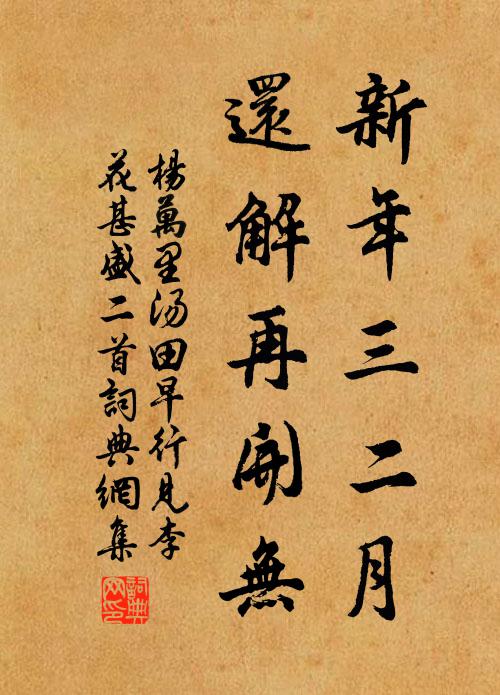 新年三二月
還解再開無
楊萬里湯田早行見李
花甚盛二首詞典網集
詞典
网印